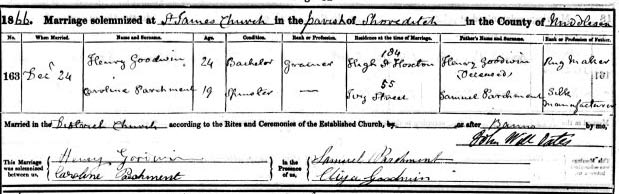 1866. Marriage solemnized at St James Church in the Parish of Shoreditch in the County of Middlesex
No. When Married. Name and Surname. Age. Condition. Rank or Profession. Residence at the time of Marriage. Father's Name and Surname. Rank or Profession of Father.
163 Decr 24 Henry Goodwin 24 Bachelor Grainer 184 High St Hoxton Henry Goodwin (Deceased) Rug Maker
Caroline Parchment 19 Spinster — 55 Ivy Street Samuel Parchment Silk Manufacturer
Married in the District Church according to the Rites and Ceremonies of the Established Church, by or after Banns by me,
John Will Oates
This Marriage was solemnized between us, Henry Goodwin Caroline Parchment In the Presence of us, Samuel Parchment Eliza Goodwin